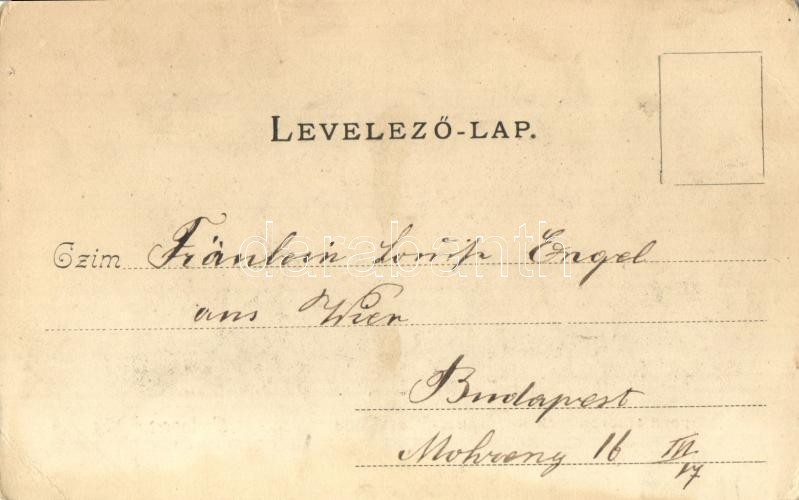 LEVELEZŐ-LAP.
Czim Fräulein Louise Engel
aus Wien
Budapest
16 III/17
darabanth